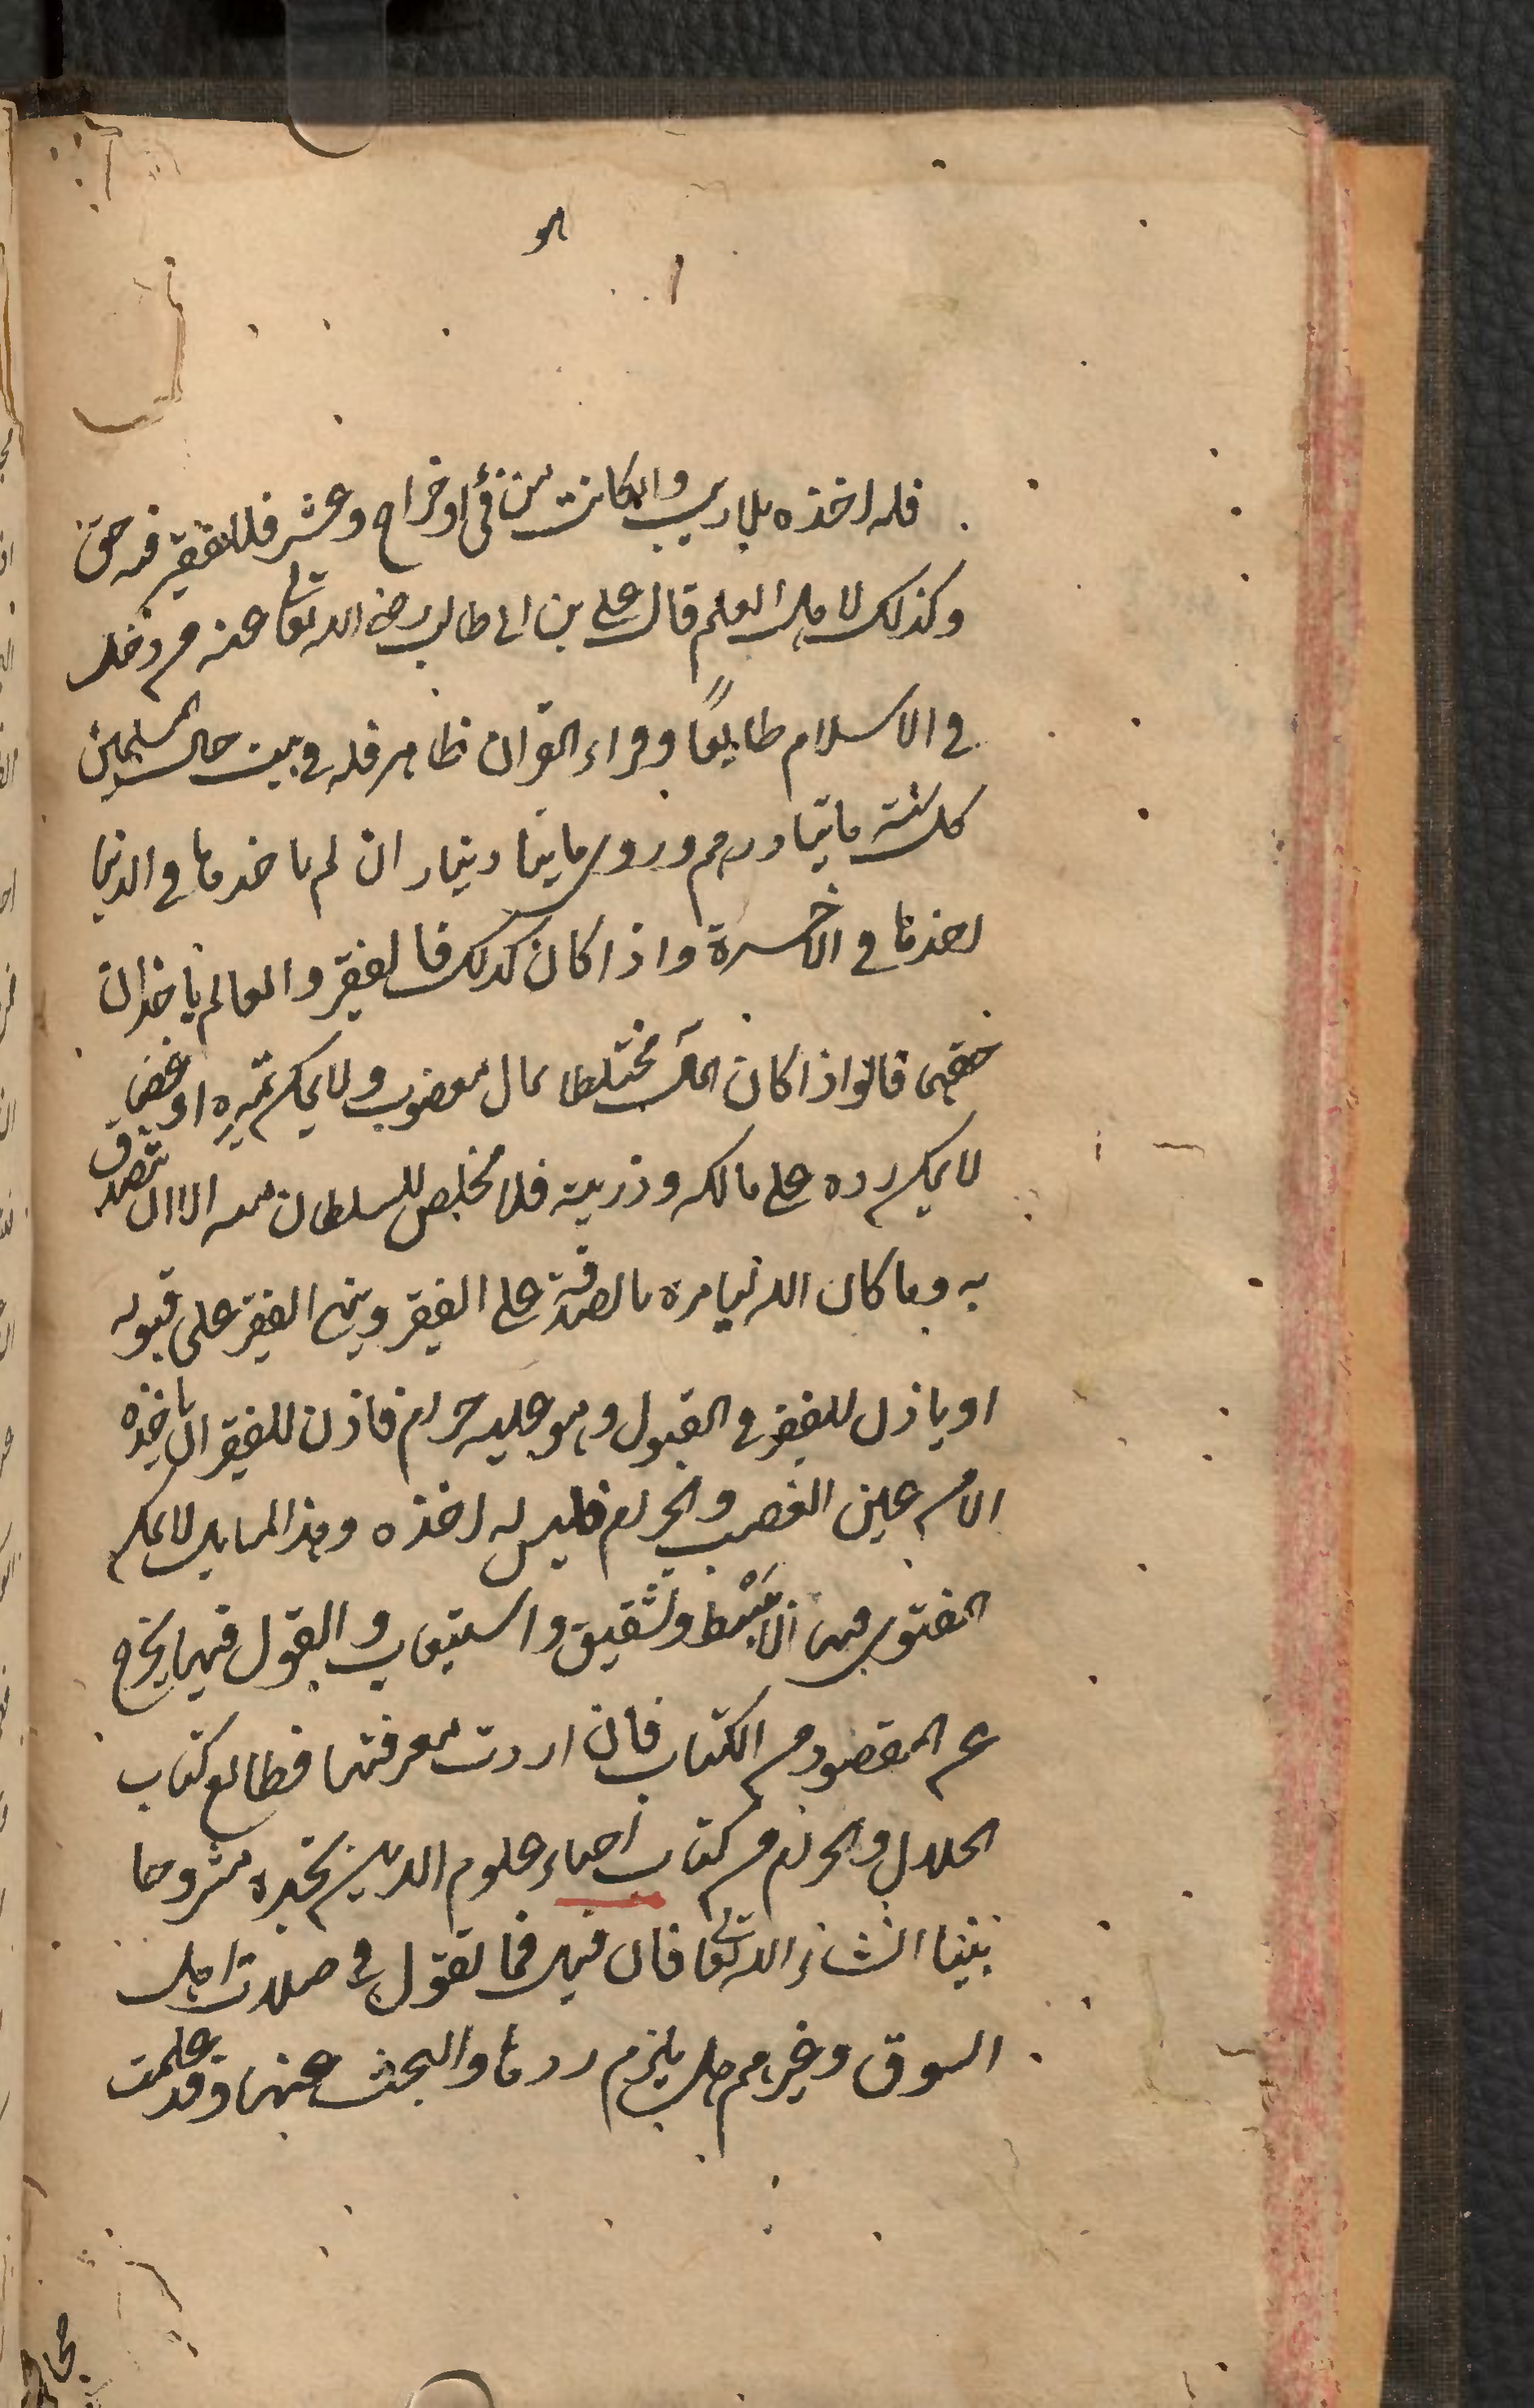 هو
فله اخذه بلا ريب وان كانت من فئ او خراج وعشر فللفقير فيه حق
وكذلك لاهل العلم قال على بن ابى طالب رضى الله تعالى عنه من دخل
فى الاسلام طايعًا وقراء القران ظاهر فله فى بيت مال المسلمين
كل سنة ماتيا درهم وروى مايتا دينار ان لم ياخذها فى الدنيا
اخذها فى الاخرة واذا كان كذلك فالفقير والعالم ياخذان
حقهما قالوا اذا كان المال مختلطا بمال مغصوب ولا يمكن تميزه او غصبا
لا يمكن رده على مالكه وذريته فلا مخلص للسلطان منه الا ان يتصدق
به وما كان الله ليامره بالصدقة على الفقير وينهى الفقير على قبوله
او ياذن للفقير فى القبول وهو عليه حرام فاذن للفقير ان ياخذه
الا من عين الغصب والحرام فليس له اخذه وهذه المسايل لا يمكن
الفتوى فيها الا ببَسْط وتشقيق واستيعاب والقول فيها يخرج
عن المقصود من الكتاب فان اردت معرفتها فطالع كتاب
الحلال والحرام من كتاب احياء علوم الدين تجده مشروحا
بينا انشاء الله تعالى فان قيل فما تقول فى صلات اهل
السوق وغيرهم هل يلزم ردها والبحث عنها وقد علمت